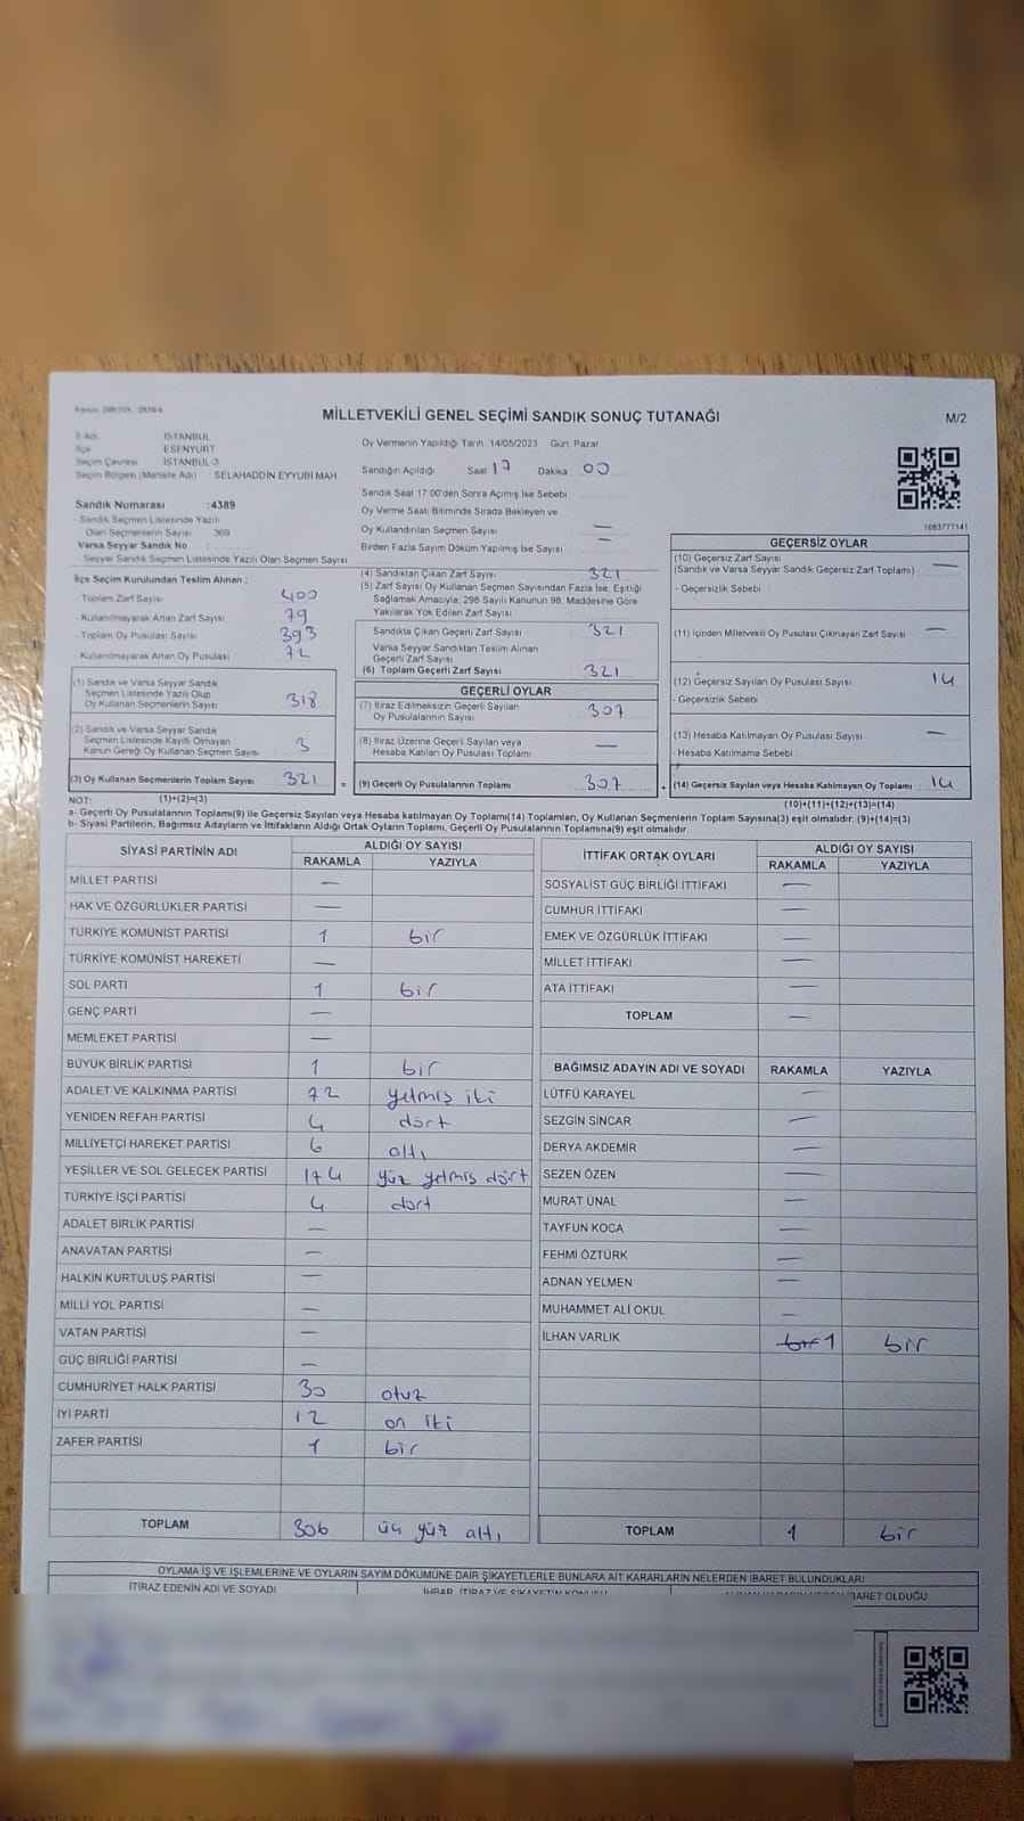 MİLLETVEKİLİ GENEL SEÇİMİ SANDIK SONUÇ TUTANAĞI
M/2
İSTANBUL
İlçe ESENYURT
Seçim Çevresi İSTANBUL-3
SELAHADDİN EYYUBİ MAH
Oy Vermenin Yapıldığı Tarih 14/05/2023 Gün: Pazar
Sandığın Açıldığı Saat 17 Dakika 00
Sandık Saat 17:00'den Sonra Açılmış İse Sebebi
Oy Verme Saati Bitiminde Sırada Bekleyen ve
Oy Kullandırılan Seçmen Sayısı —
Birden Fazla Sayım Döküm Yapılmış İse Sayısı —
Sandık Numarası :4389
Sandık Seçmen Listesinde Yazılı
Olan Seçmenlerin Sayısı 369
Varsa Seyyar Sandık No
Seyyar Sandık Seçmen Listesinde Yazılı Olan Seçmen Sayısı
1083777141
İlçe Seçim Kurulundan Teslim Alınan :
- Toplam Zarf Sayısı 400
- Kullanılmayarak Artan Zarf Sayısı 79
- Toplam Oy Pusulası Sayısı 393
- Kullanılmayarak Artan Oy Pusulası 72
(1) Sandık ve Varsa Seyyar Sandık
Seçmen Listesinde Yazılı Olup
Oy Kullanan Seçmenlerin Sayısı 318
(2) Sandık ve Varsa Seyyar Sandık
Seçmen Listesinde Kayıtlı Olmayan
Kanun Gereği Oy Kullanan Seçmen Sayısı 3
(3) Oy Kullanan Seçmenlerin Toplam Sayısı 321 =
(1)+(2)=(3)
(4) Sandıktan Çıkan Zarf Sayısı 321
(5) Zarf Sayısı Oy Kullanan Seçmen Sayısından Fazla İse, Eşitliği
Sağlamak Amacıyla, 298 Sayılı Kanunun 98. Maddesine Göre
Yakılarak Yok Edilen Zarf Sayısı
Sandıkta Çıkan Geçerli Zarf Sayısı 321
Varsa Seyyar Sandıktan Teslim Alınan
Geçerli Zarf Sayısı
(6) Toplam Geçerli Zarf Sayısı 321
GEÇERLİ OYLAR
(7) İtiraz Edilmeksizin Geçerli Sayılan
Oy Pusulalarının Sayısı 307
(8) İtiraz Üzerine Geçerli Sayılan veya
Hesaba Katılan Oy Pusulası Toplamı —
(9) Geçerli Oy Pusulalarının Toplamı 307 +
GEÇERSİZ OYLAR
(10) Geçersiz Zarf Sayısı
(Sandık ve Varsa Seyyar Sandık Geçersiz Zarf Toplamı) —
- Geçersizlik Sebebi
(11) İçinden Milletvekili Oy Pusulası Çıkmayan Zarf Sayısı —
(12) Geçersiz Sayılan Oy Pusulası Sayısı 14
- Geçersizlik Sebebi
(13) Hesaba Katılmayan Oy Pusulası Sayısı —
- Hesaba Katılmama Sebebi
(14) Geçersiz Sayılan veya Hesaba Katılmayan Oy Toplamı 14
(10)+(11)+(12)+(13)=(14)
NOT:
a- Geçerli Oy Pusulalarının Toplamı(9) ile Geçersiz Sayılan veya Hesaba katılmayan Oy Toplamı(14) Toplamları, Oy Kullanan Seçmenlerin Toplam Sayısına(3) eşit olmalıdır. (9)+(14)=(3)
b- Siyasi Partilerin, Bağımsız Adayların ve İttifakların Aldığı Ortak Oyların Toplamı, Geçerli Oy Pusulalarının Toplamına(9) eşit olmalıdır.
SİYASİ PARTİNİN ADI ALDIĞI OY SAYISI
RAKAMLA YAZIYLA
MİLLET PARTİSİ —
HAK VE ÖZGÜRLÜKLER PARTİSİ —
TÜRKİYE KOMÜNİST PARTİSİ 1 bir
TÜRKİYE KOMÜNİST HAREKETİ —
SOL PARTİ 1 bir
GENÇ PARTİ —
MEMLEKET PARTİSİ —
BÜYÜK BİRLİK PARTİSİ 1 bir
ADALET VE KALKINMA PARTİSİ 72 yetmiş iki
YENİDEN REFAH PARTİSİ 4 dört
MİLLİYETÇİ HAREKET PARTİSİ 6 altı
YEŞİLLER VE SOL GELECEK PARTİSİ 174 yüz yetmiş dört
TÜRKİYE İŞÇİ PARTİSİ 4 dört
ADALET BİRLİK PARTİSİ —
ANAVATAN PARTİSİ —
HALKIN KURTULUŞ PARTİSİ —
MİLLİ YOL PARTİSİ —
VATAN PARTİSİ —
GÜÇ BİRLİĞİ PARTİSİ —
CUMHURİYET HALK PARTİSİ 30 otuz
İYİ PARTİ 12 on iki
ZAFER PARTİSİ 1 bir
TOPLAM 306 üç yüz altı
İTTİFAK ORTAK OYLARI ALDIĞI OY SAYISI
RAKAMLA YAZIYLA
SOSYALİST GÜÇ BİRLİĞİ İTTİFAKI —
CUMHUR İTTİFAKI —
EMEK VE ÖZGÜRLÜK İTTİFAKI —
MİLLET İTTİFAKI —
ATA İTTİFAKI —
TOPLAM —
BAĞIMSIZ ADAYIN ADI VE SOYADI RAKAMLA YAZIYLA
LÜTFÜ KARAYEL —
SEZGİN SİNCAR —
DERYA AKDEMİR —
SEZEN ÖZEN —
MURAT ÜNAL —
TAYFUN KOCA —
FEHMİ ÖZTÜRK —
ADNAN YELMEN —
MUHAMMET ALİ OKUL —
İLHAN VARLIK bir 1 bir
TOPLAM 1 bir
OYLAMA İŞ VE İŞLEMLERİNE VE OYLARIN SAYIM DÖKÜMÜNE DAİR ŞİKAYETLERLE BUNLARA AİT KARARLARIN NELERDEN İBARET BULUNDUKLARI
İTİRAZ EDENİN ADI VE SOYADI
İHBAR, İTİRAZ VE ŞİKAYETİN KONUSU
İBARET OLDUĞU